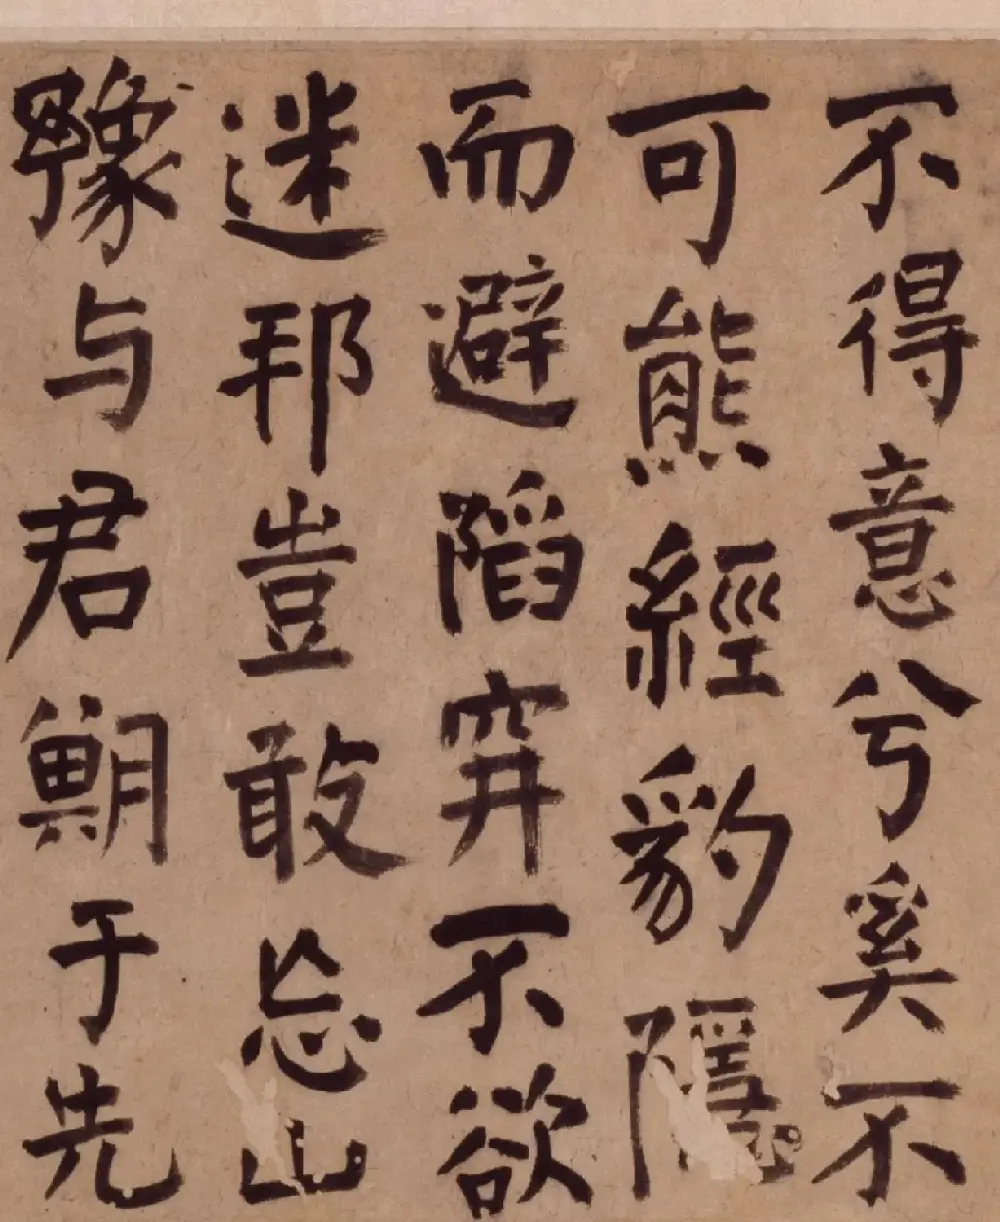 不得意兮奚不
可熊經豹隱
而避陷穽不欲
迷邦豈敢忘山
豫与君于先